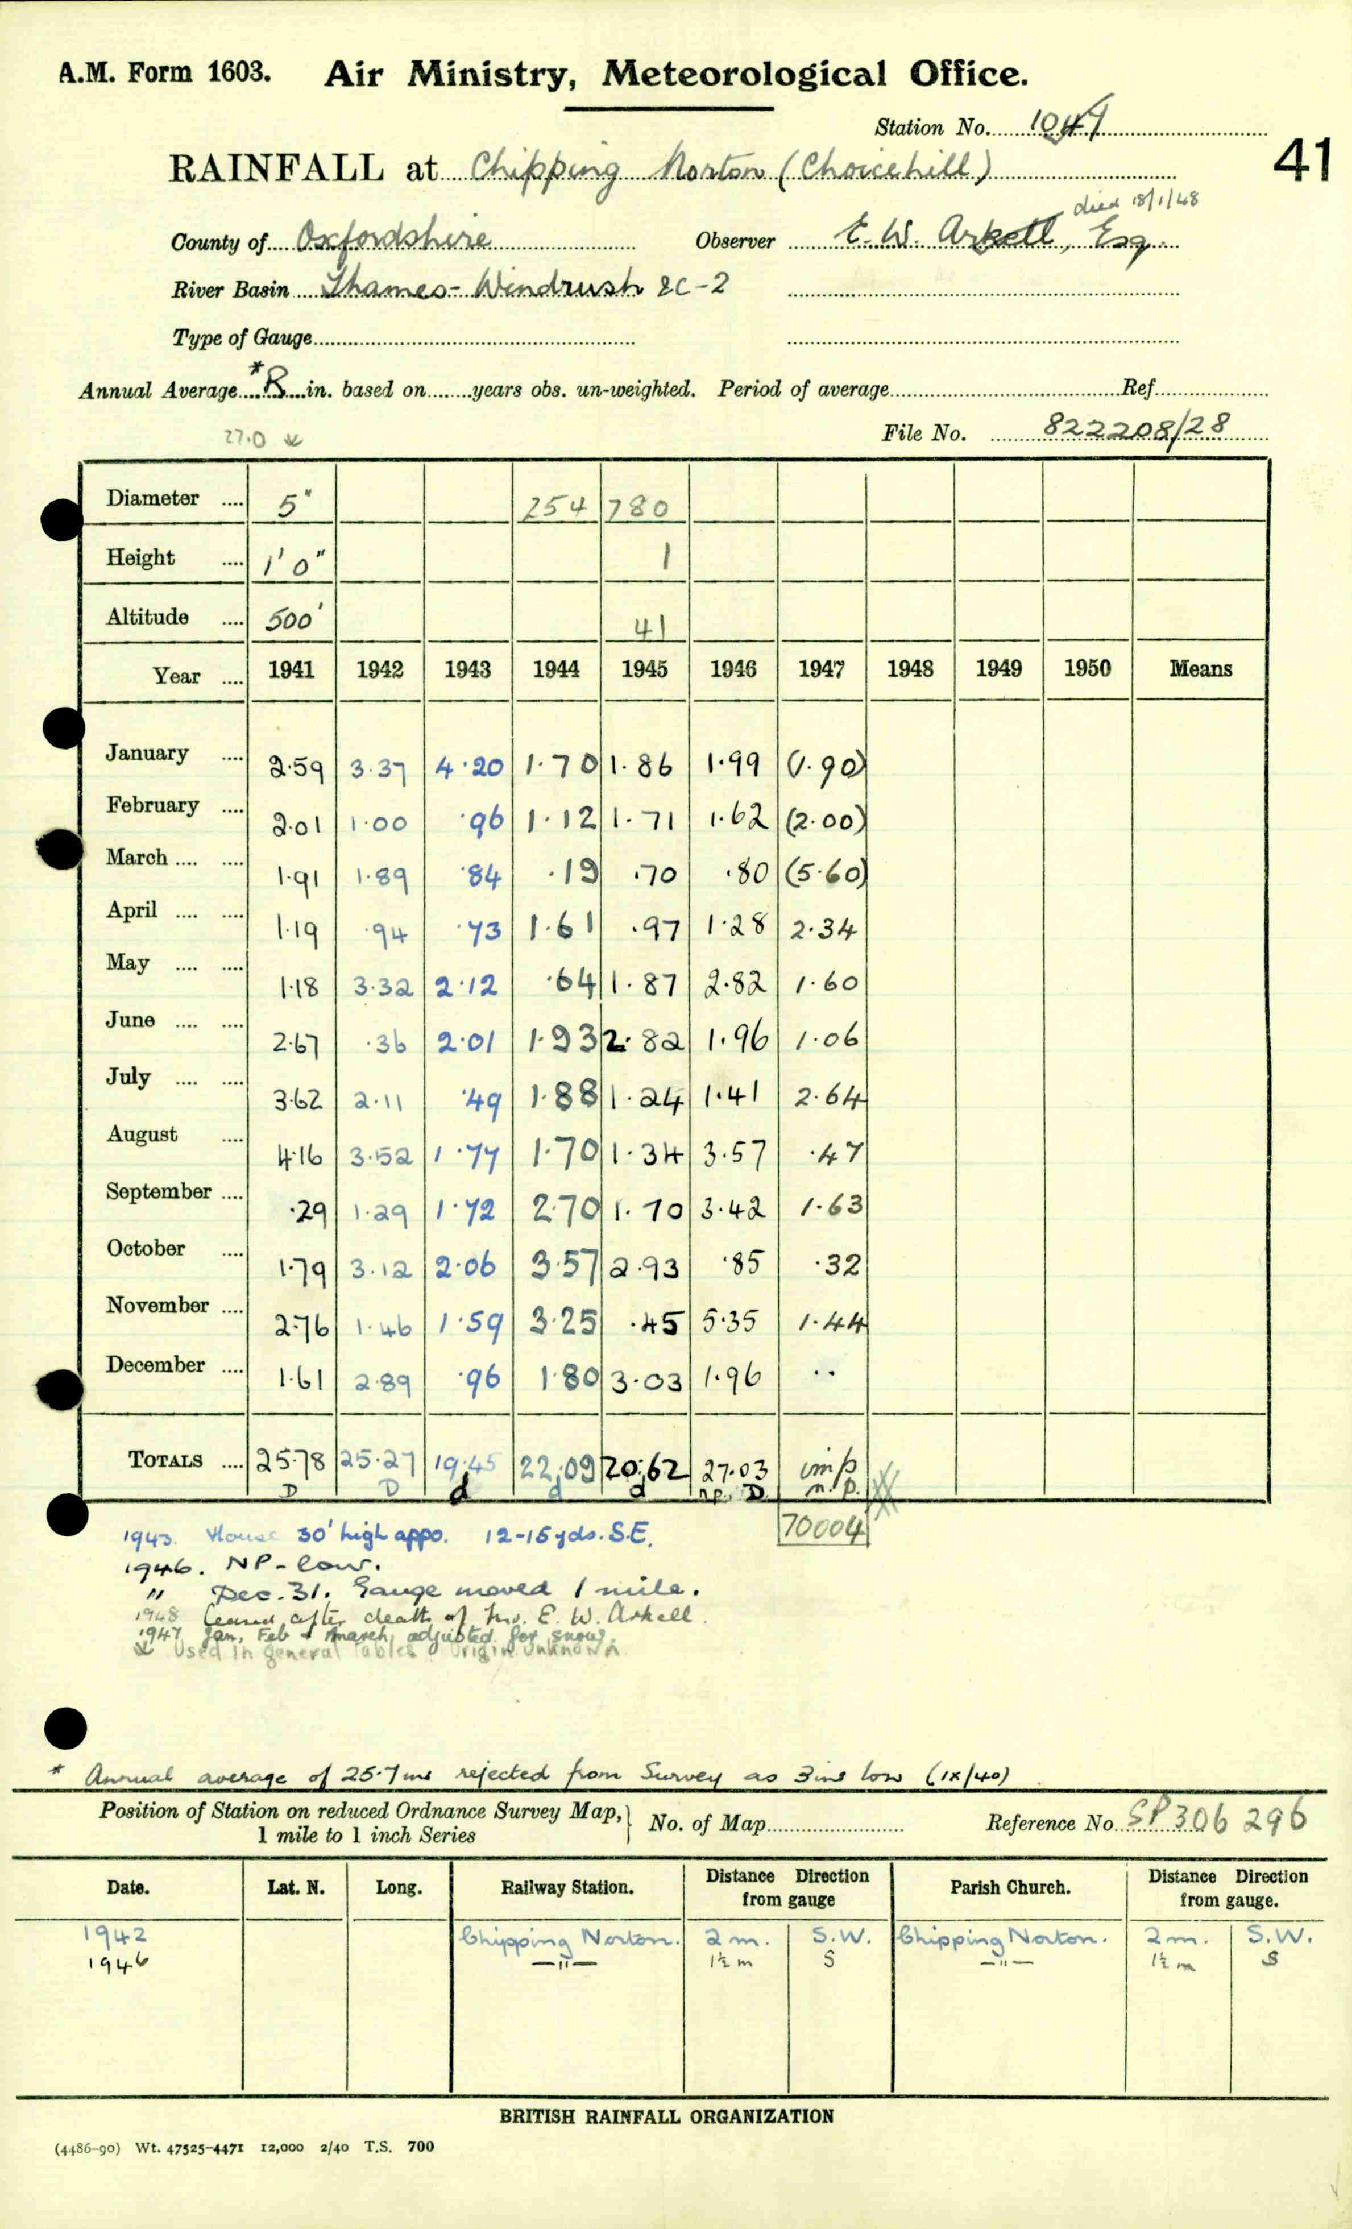 A.M. Form 1603. Air Ministry, Meteorological Office.
Station No. 1049
41
RAINFALL at Chipping Norton (Choicehill)
died 18/1/48
County of Oxfordshire Observer E. W. Arkell, Esq.
River Basin Thames - Windrush 2C-2
Type of Gauge
Annual Average *R in. based on years obs. un-weighted. Period of average Ref
27.0 File No. 822208/28
Diameter .... 5" 254 780
Height .... 1' 0" 1
Altitude .... 500' 41
Year .... 1941 1942 1943 1944 1945 1946 1947 1948 1949 1950 Means
January .... 2.59 3.37 4.20 1.70 1.86 1.99 (1.90)
February .... 2.01 1.00 .96 1.12 1.71 1.62 (2.00)
March .... .... 1.91 1.89 .84 .19 .70 .80 (5.60)
April .... .... 1.19 .94 .73 1.61 .97 1.28 2.34
May .... .... 1.18 3.32 2.12 .64 1.87 2.82 1.60
June .... .... 2.67 .36 2.01 1.93 2.82 1.96 1.06
July .... .... 3.62 2.11 .49 1.88 1.24 1.41 2.64
August .... 4.16 3.52 1.77 1.70 1.34 3.57 .47
September .... .29 1.29 1.72 2.70 1.70 3.42 1.63
October .... 1.79 3.12 2.06 3.57 2.93 .85 .32
November .... 2.76 1.46 1.59 3.25 .45 5.35 1.44
December .... 1.61 2.89 .96 1.80 3.03 1.96 ..
TOTALS .... 25.78 25.27 19.45 22.09 20.62 27.03 imp
D D d d d n.p. D n.p.
70004
1943. House 30' high appo. 12-15 yds. S.E.
1946. NP - low.
" Dec. 31. Gauge moved 1 mile.
1948 Ceased after death of Mr. E. W. Arkell.
1947 Jan, Feb & March, adjusted for snow.
Used in general Tables. Origin Unknown
* Annual average of 25.7 ins rejected from Survey as 3 ins low (IX/40)
Position of Station on reduced Ordnance Survey Map, 1 mile to 1 inch Series } No. of Map Reference No. SP 306 296
Date. Lat. N. Long. Railway Station. Distance Direction from gauge Parish Church. Distance Direction from gauge.
1942 Chipping Norton. 2 m. S.W. Chipping Norton. 2 m. S.W.
1946 —"— 1½ m S —"— 1½ m S
BRITISH RAINFALL ORGANIZATION
(4486-90) Wt. 47525-4471 12,000 2/40 T.S. 700